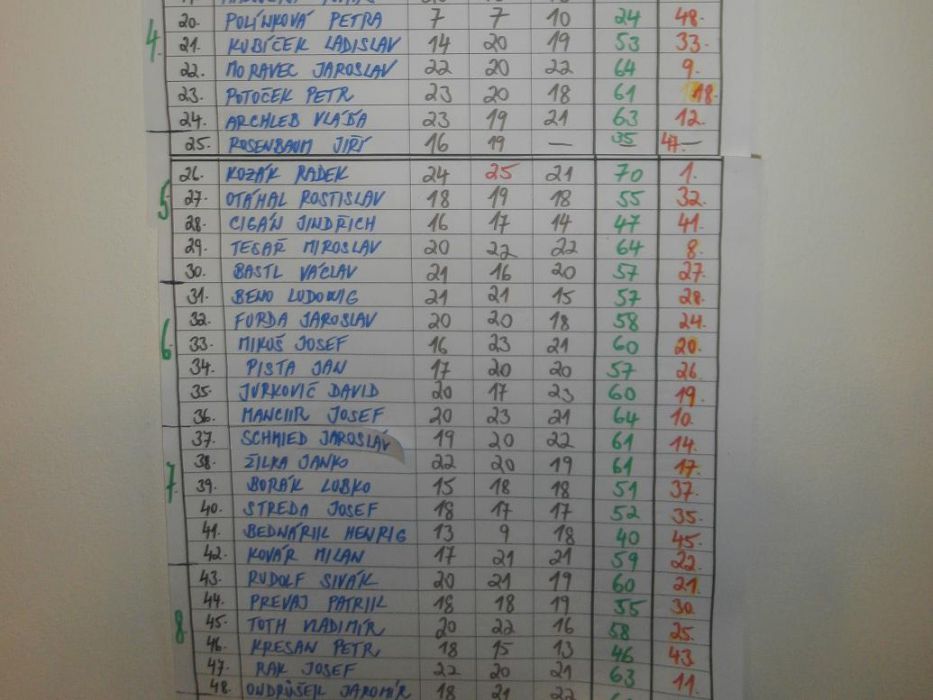 20. POLÍNKOVÁ PETRA 7 7 10 24 48.
4 21. KUBÍČEK LADISLAV 14 20 19 53 33.
22. MORAVEC JAROSLAV 22 20 22 64 9.
23. POTOČEK PETR 23 20 18 61 18.
24. ARCHLEB VLÁĎA 23 19 21 63 12.
25. ROSENBAUM JIŘÍ 16 19 — 35 47.—
26. KOZÁK RADEK 24 25 21 70 1.
5 27. OTÁHAL ROSTISLAV 18 19 18 55 32.
28. CIGÁN JINDŘICH 16 17 14 47 41.
29. TESAŘ MIROSLAV 20 22 22 64 8.
30. BASTL VÁCLAV 21 16 20 57 27.
31. BENO LUDOWIG 21 21 15 57 28.
32. FURDA JAROSLAV 20 20 18 58 24.
6 33. MIKOŠ JOSEF 16 23 21 60 20.
34. PISTA JAN 17 20 20 57 26.
35. JURKOVIČ DAVID 20 17 23 60 19.
36. MANCIR JOSEF 20 23 21 64 10.
37. SCHMIED JAROSLAV 19 20 22 61 14.
38. ŽILKA JANKO 22 20 19 61 17.
7 39. BORÁK LUBKO 15 18 18 51 37.
40. STREDA JOSEF 18 17 17 52 35.
41. BEDNÁRIK HENRIG 13 9 18 40 45.
42. KOVÁR MILAN 17 21 21 59 22.
43. RUDOLF SIVÁK 20 21 19 60 21.
44. PREVAJ PATRIK 18 18 19 55 30.
8 45. TOTH VLADIMÍR 20 22 16 58 25.
46. KRESAN PETR 18 15 13 46 43.
47. RAK JOSEF 22 20 21 63 11.
48. ONDRŮŠEK JAROMÍR 18 21 22